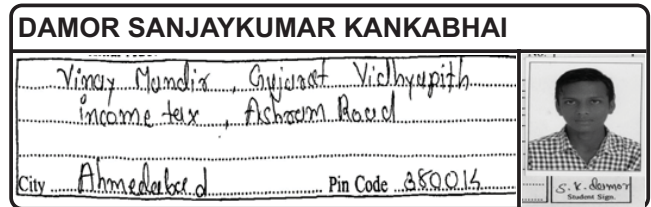 DAMOR SANJAYKUMAR KANKABHAI
Vinay Mandir , Gujarat Vidhyapith
income tax , Ashram Road
City Ahmedabad Pin Code 380014
S. K. damor
Student Sign.